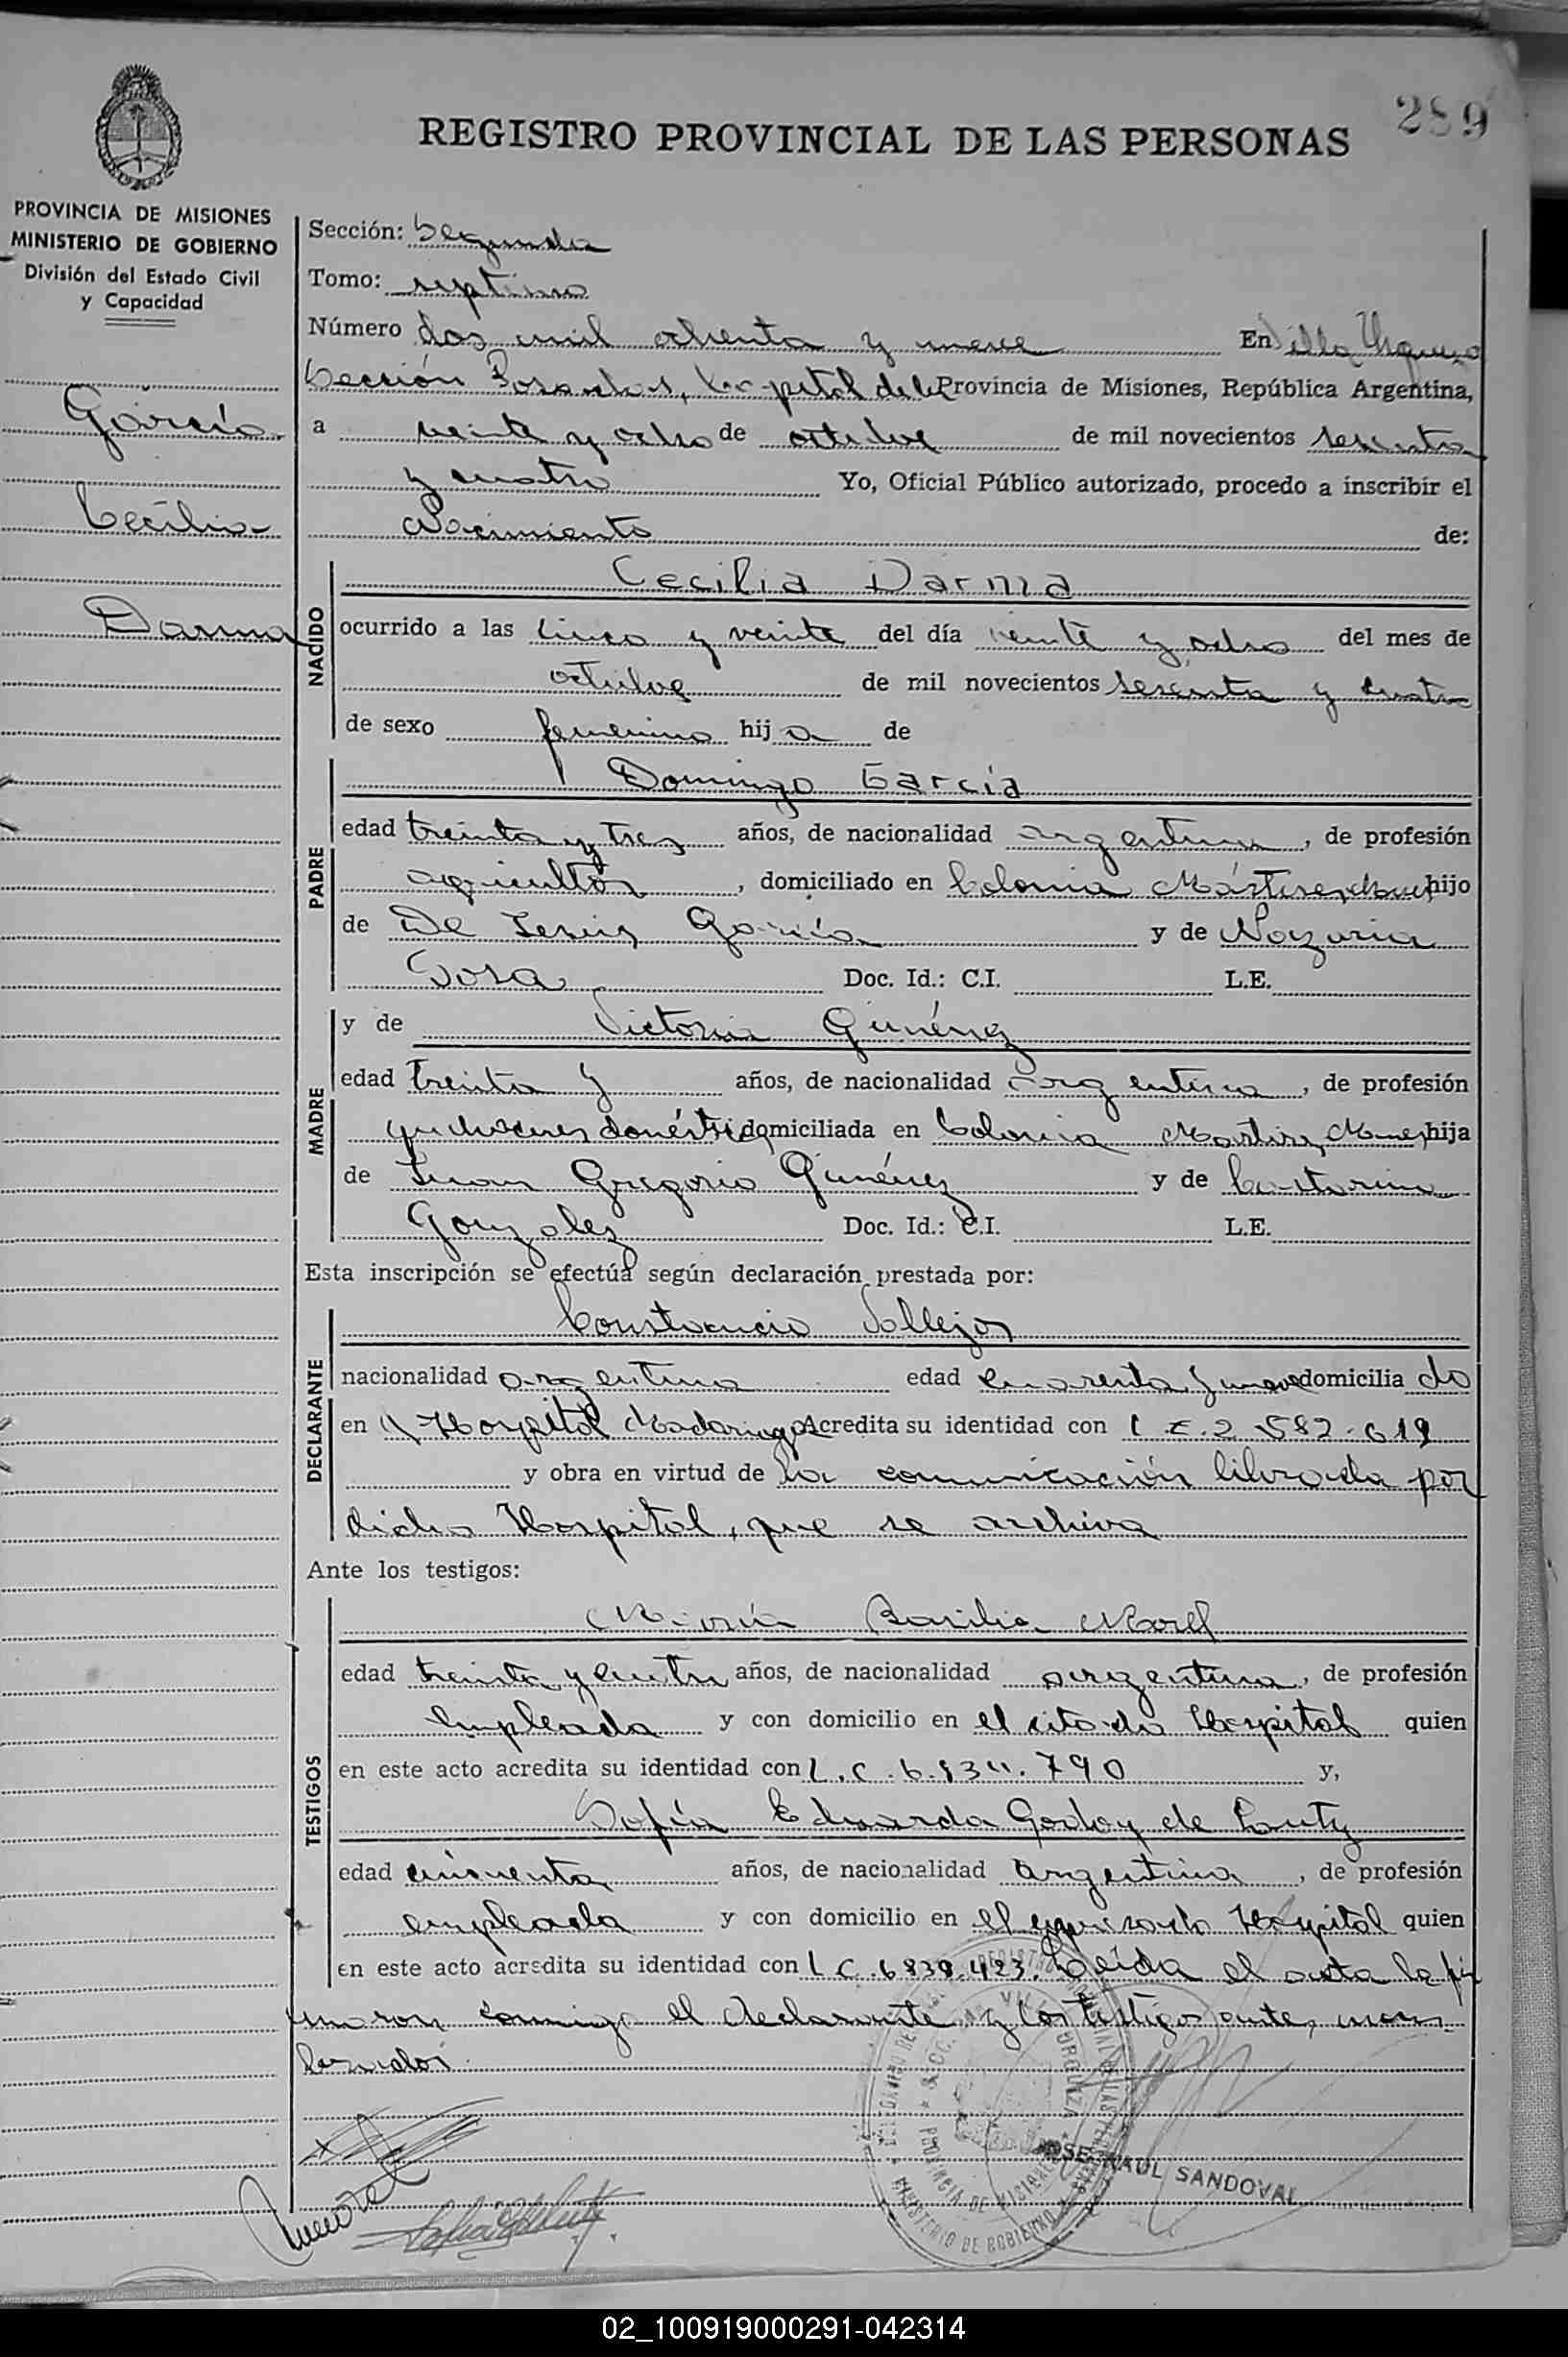 289
REGISTRO PROVINCIAL DE LAS PERSONAS
PROVINCIA DE MISIONES
MINISTERIO DE GOBIERNO
División del Estado Civil
y Capacidad
García
Cecilia
Darma
Sección: Segunda
Tomo: septimo
Número dos mil ochenta y nueve En Villa Urquiza
Sección Posadas, Capital de la Provincia de Misiones, República Argentina,
a veinte y ocho de octubre de mil novecientos sesenta
y cuatro Yo, Oficial Público autorizado, procedo a inscribir el
Nacimiento de:
NACIDO
Cecilia Darma
ocurrido a las cinco y veinte del día veinte y ocho del mes de
octubre de mil novecientos sesenta y cuatro
de sexo femenino hija de
PADRE
Domingo García
edad treinta y tres años, de nacionalidad argentina, de profesión
agricultor, domiciliado en Colonia Mártires, Mnes, hijo
de De Jesús García y de Nazaria
Sosa Doc. Id.: C.I. L.E.
MADRE
y de Victoria Giménez
edad treinta y años, de nacionalidad argentina, de profesión
quehaceres domésticos domiciliada en Colonia Martires, Mnes, hija
de Juan Gregorio Giménez y de
Gonzalez Doc. Id.: C.I. L.E.
Esta inscripción se efectúa según declaración prestada por:
DECLARANTE
Constancio Vallejos
nacionalidad argentina edad cuarenta y nueve domiciliado
en Hospital Madariaga Acredita su identidad con L.E. 2.582.619
y obra en virtud de la comunicación librada por
dicho Hospital, que se archiva
Ante los testigos:
TESTIGOS
María Basilia Morel
edad treinta y cuatro años, de nacionalidad argentina, de profesión
empleada y con domicilio en el citado Hospital quien
en este acto acredita su identidad con L.C. 790 y,
Sofía Eduarda Godoy de Lautz
edad cincuenta años, de nacionalidad argentina, de profesión
empleada y con domicilio en el expresado Hospital quien
en este acto acredita su identidad con L C. 6.839.423. Leída el acta la fir
maron conmigo el declarante y los testigos ante,
JOSE RAUL SANDOVAL
02_100919000291-042314